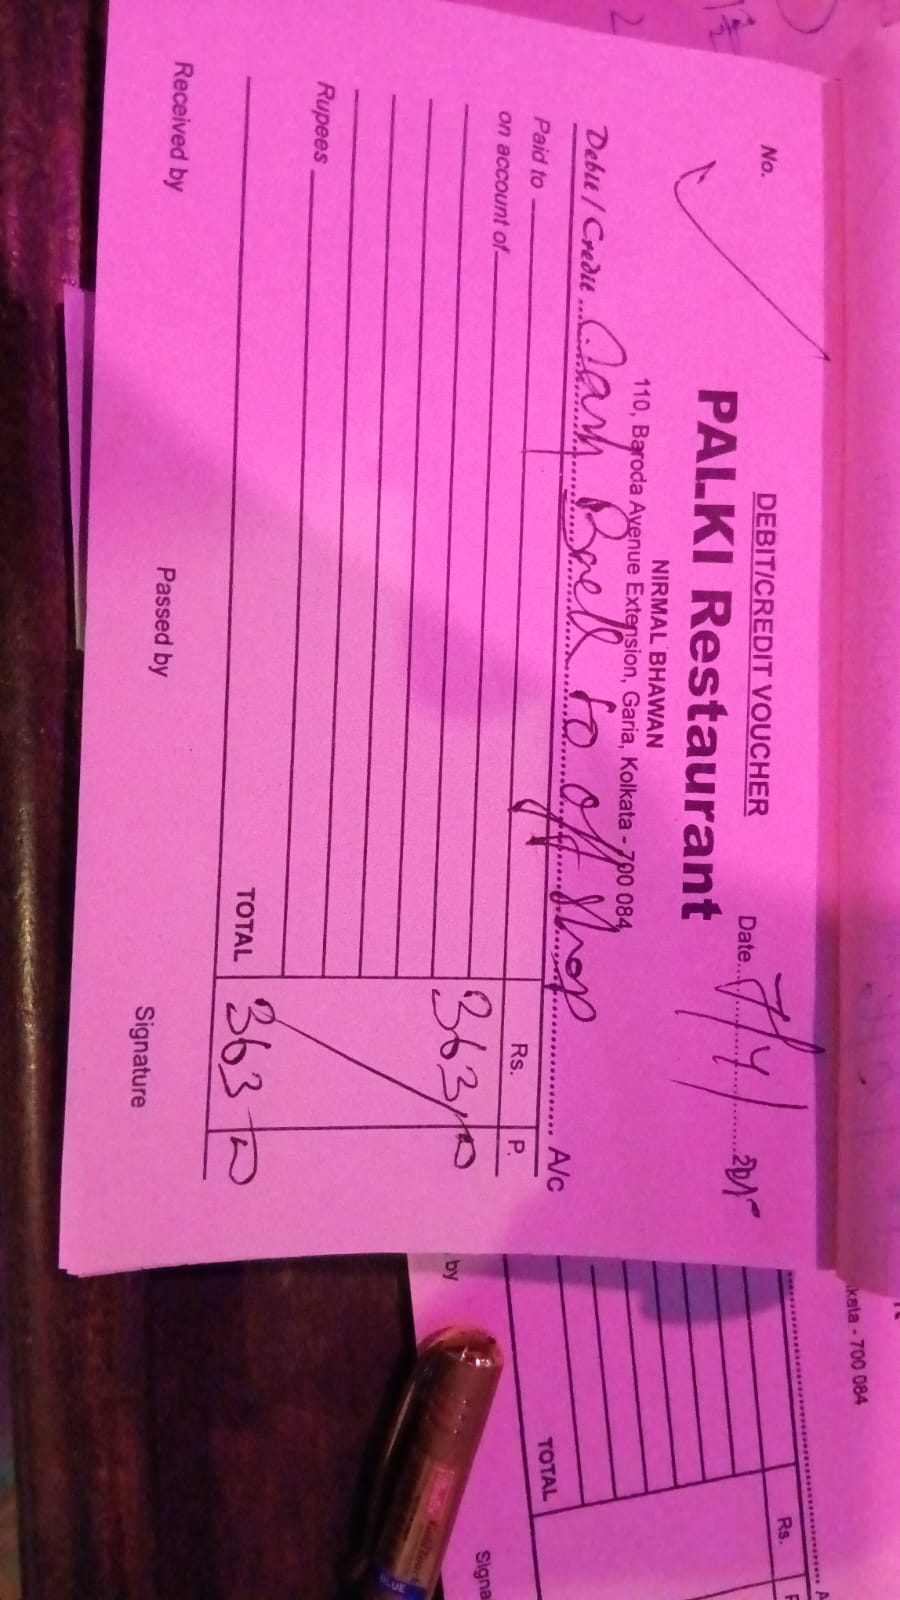 DEBIT/CREDIT VOUCHER
No.
PALKI Restaurant
Date 7/4/
NIRMAL BHAWAN
110, Baroda Avenue Extension, Garia, Kolkata - 700 084
Debit / Credit Cash Back to off Shop A/c
Paid to
Rs. P.
on account of
363
Rupees
TOTAL 363
Received by Passed by Signature
kata - 700 084
Rs.
TOTAL
by
Signa
BLUE